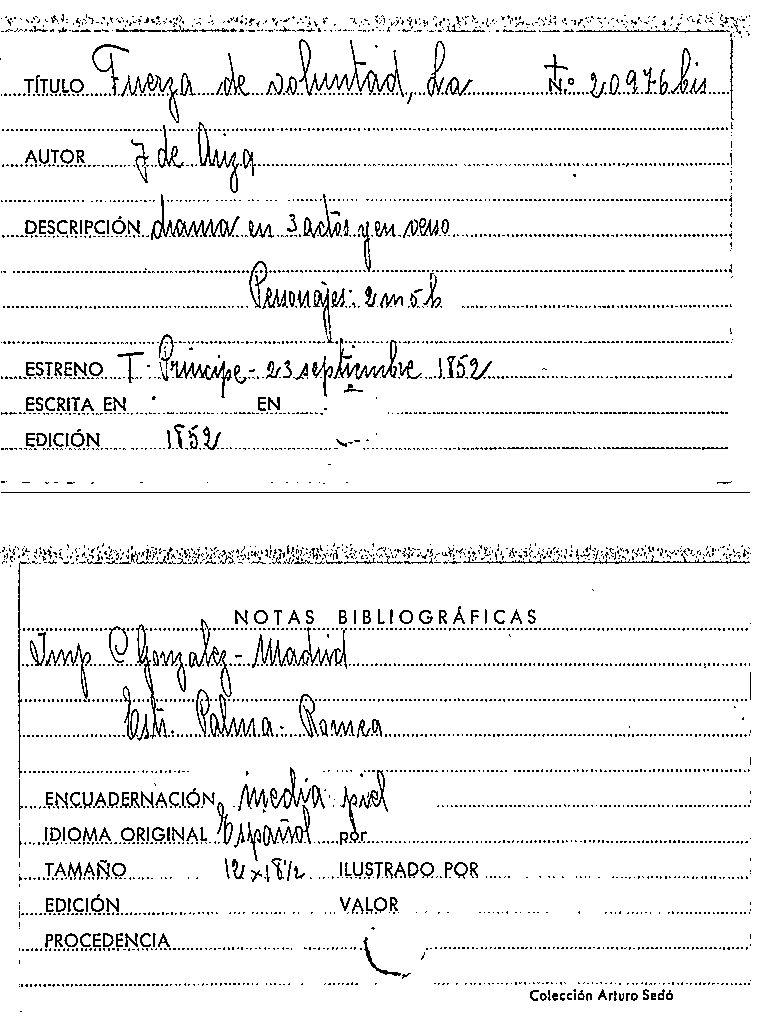 TÍTULO Fuerza de voluntad, La N.º 20976 bis
AUTOR J de Ariza
DESCRIPCIÓN drama en 3 actos y en verso
Personajes: 2 m 5 h
ESTRENO T. Principe - 23 septiembre 1852
ESCRITA EN EN
EDICIÓN 1852
NOTAS BIBLIOGRÁFICAS
Imp C Gonzalez - Madrid
Estr. Palma - Romea
ENCUADERNACIÓN media piel
IDIOMA ORIGINAL Español por
TAMAÑO 12 x 18 1/2 ILUSTRADO POR
EDICIÓN VALOR
PROCEDENCIA
Colección Arturo Sedó